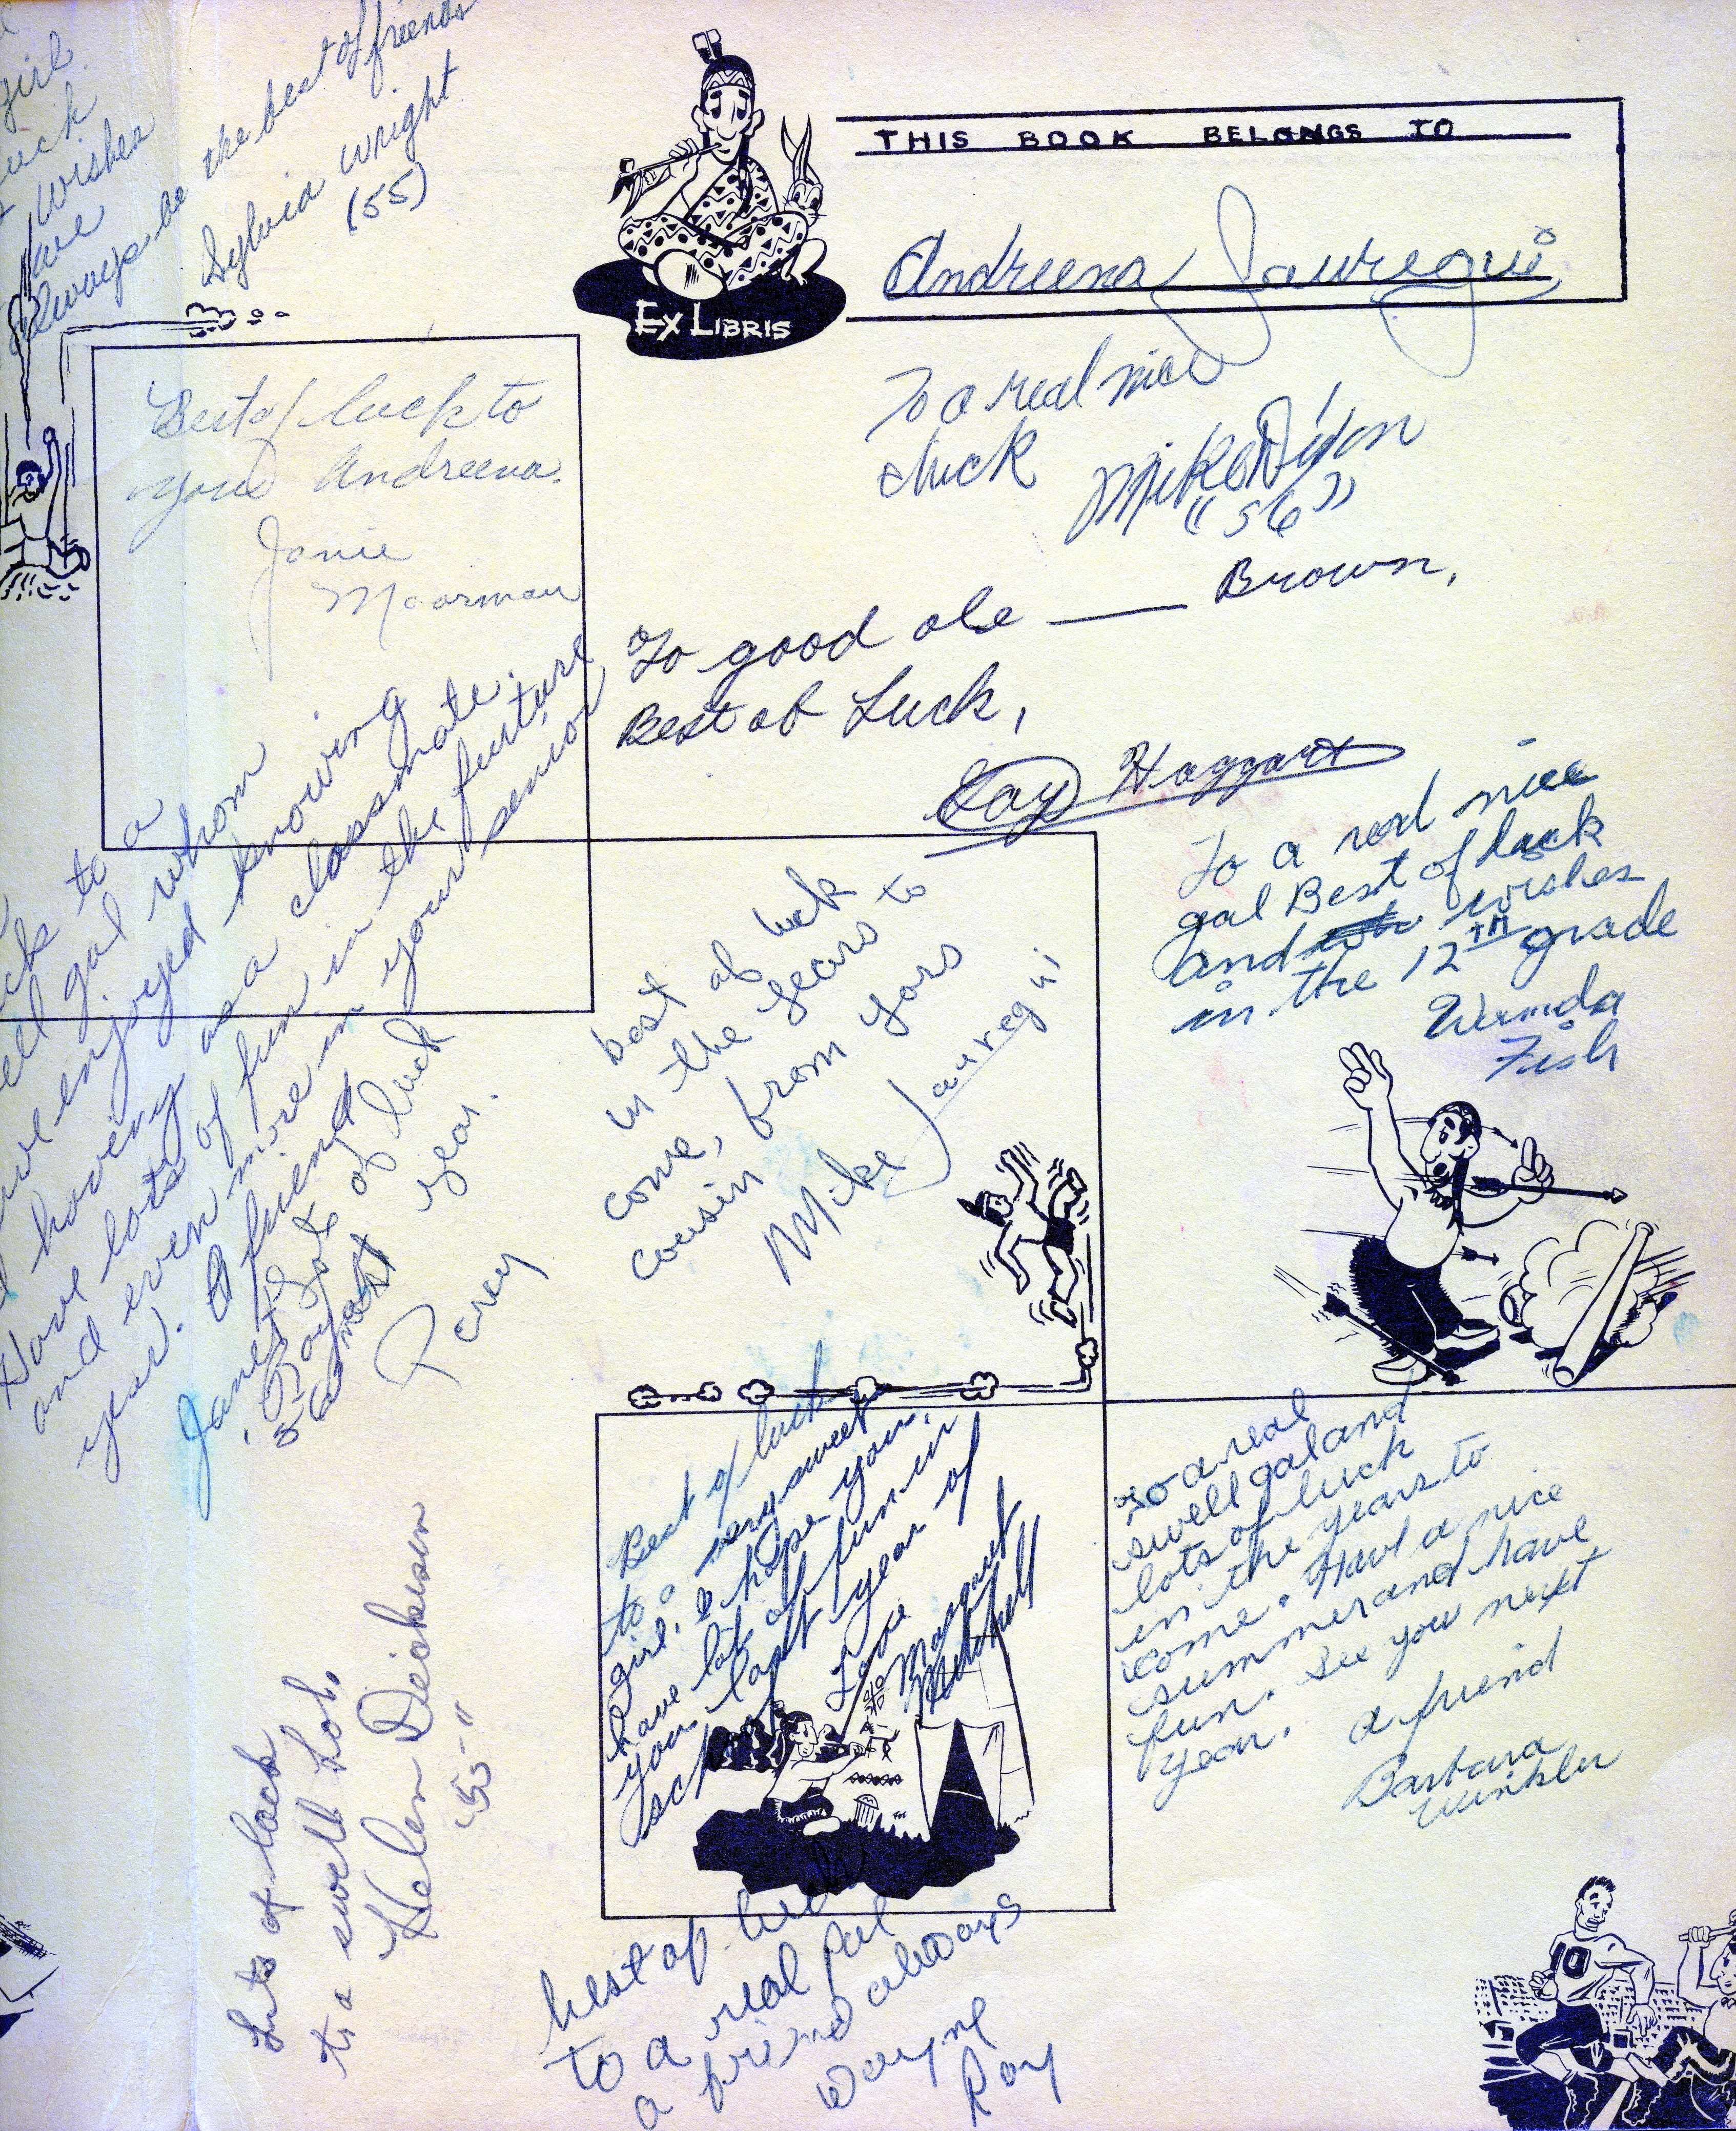 girl
luck
wishes
Always be the best of friends
Sylvia Wright
(55)
THIS BOOK BELONGS TO
Andreena Jauregui
EX LIBRIS
To a real nice
chick
Mike
"56"
Best of luck to
you Andreena.
Janie
Moorman
To good ole — Brown,
Best of Luck,
Haggart
To a real nice
gal Best of luck
and wishes
in the 12TH grade
Wanda
Fish
to a
gal whom
enjoyed knowing
having as a classmate.
Have lots of fun in the furture
and even more in your senior
year. A friend
Janet
56
Lots of luck
next year.
best of luck
in the years to
come, from yors
cousin
Mike Jauregui
Best of luck
to a very sweet
girl. I hope you
have lots of fun in
your last year of
school
Love
Margaret
Mitchell
To a real
swell gal and
lots of luck
in the years to
come. Have a nice
summer and have
fun. See you next
year.
a friend
Barbara
Winkler
Lots of luck
to a swell
Helen
"55"
best of luck
to a real pal
a frind always
Wayne
Ray
10